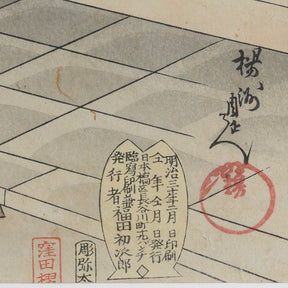 楊洲周延
明治三十年二月 日印刷
仝年仝月 日発行
日本橋区長谷川町十九バンチ
臨写印刷兼
発行者 福田初次郎
彫弥太
窪田摺